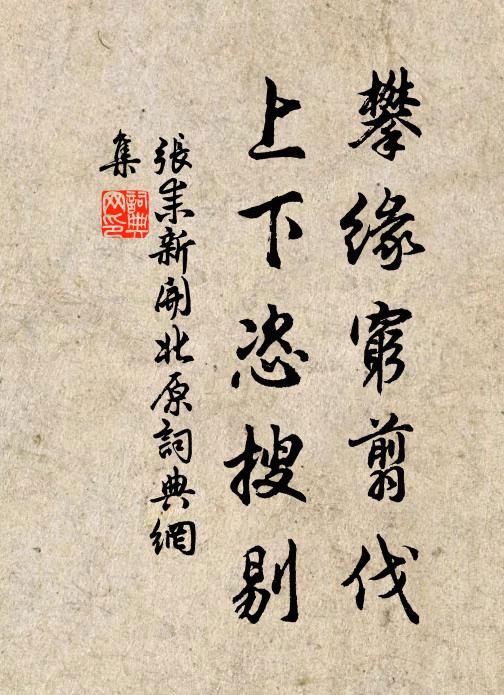 攀緣窮剪伐
上下恣搜剔
張耒新開北原詞典網
集
詞典網印